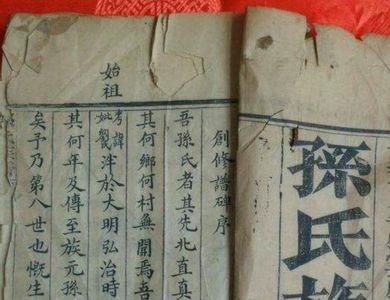 孫氏
創修譜碑序
吾孫氏者其先北直真
其何鄉何村無聞焉吾
始祖
考諱
妣
泮於大明弘治時
其何年及傳至族元孫
矣予乃第八世也慨生